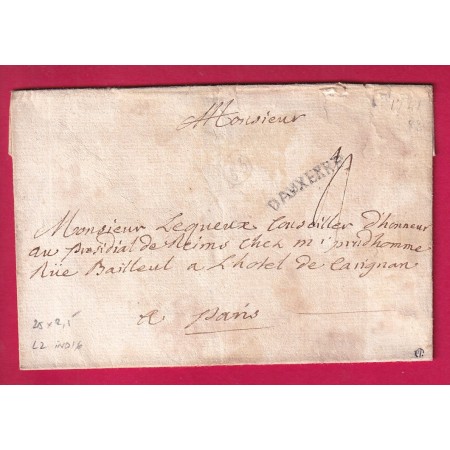 Monsieur
DAUXERRE
Monsieur Lequeux Conseiller d'honneur
au presidial de Reims chez mr prudhomme
Rüe Bailleul a L'hotel de Carignan
a paris
25 x 2,5
L2 indi